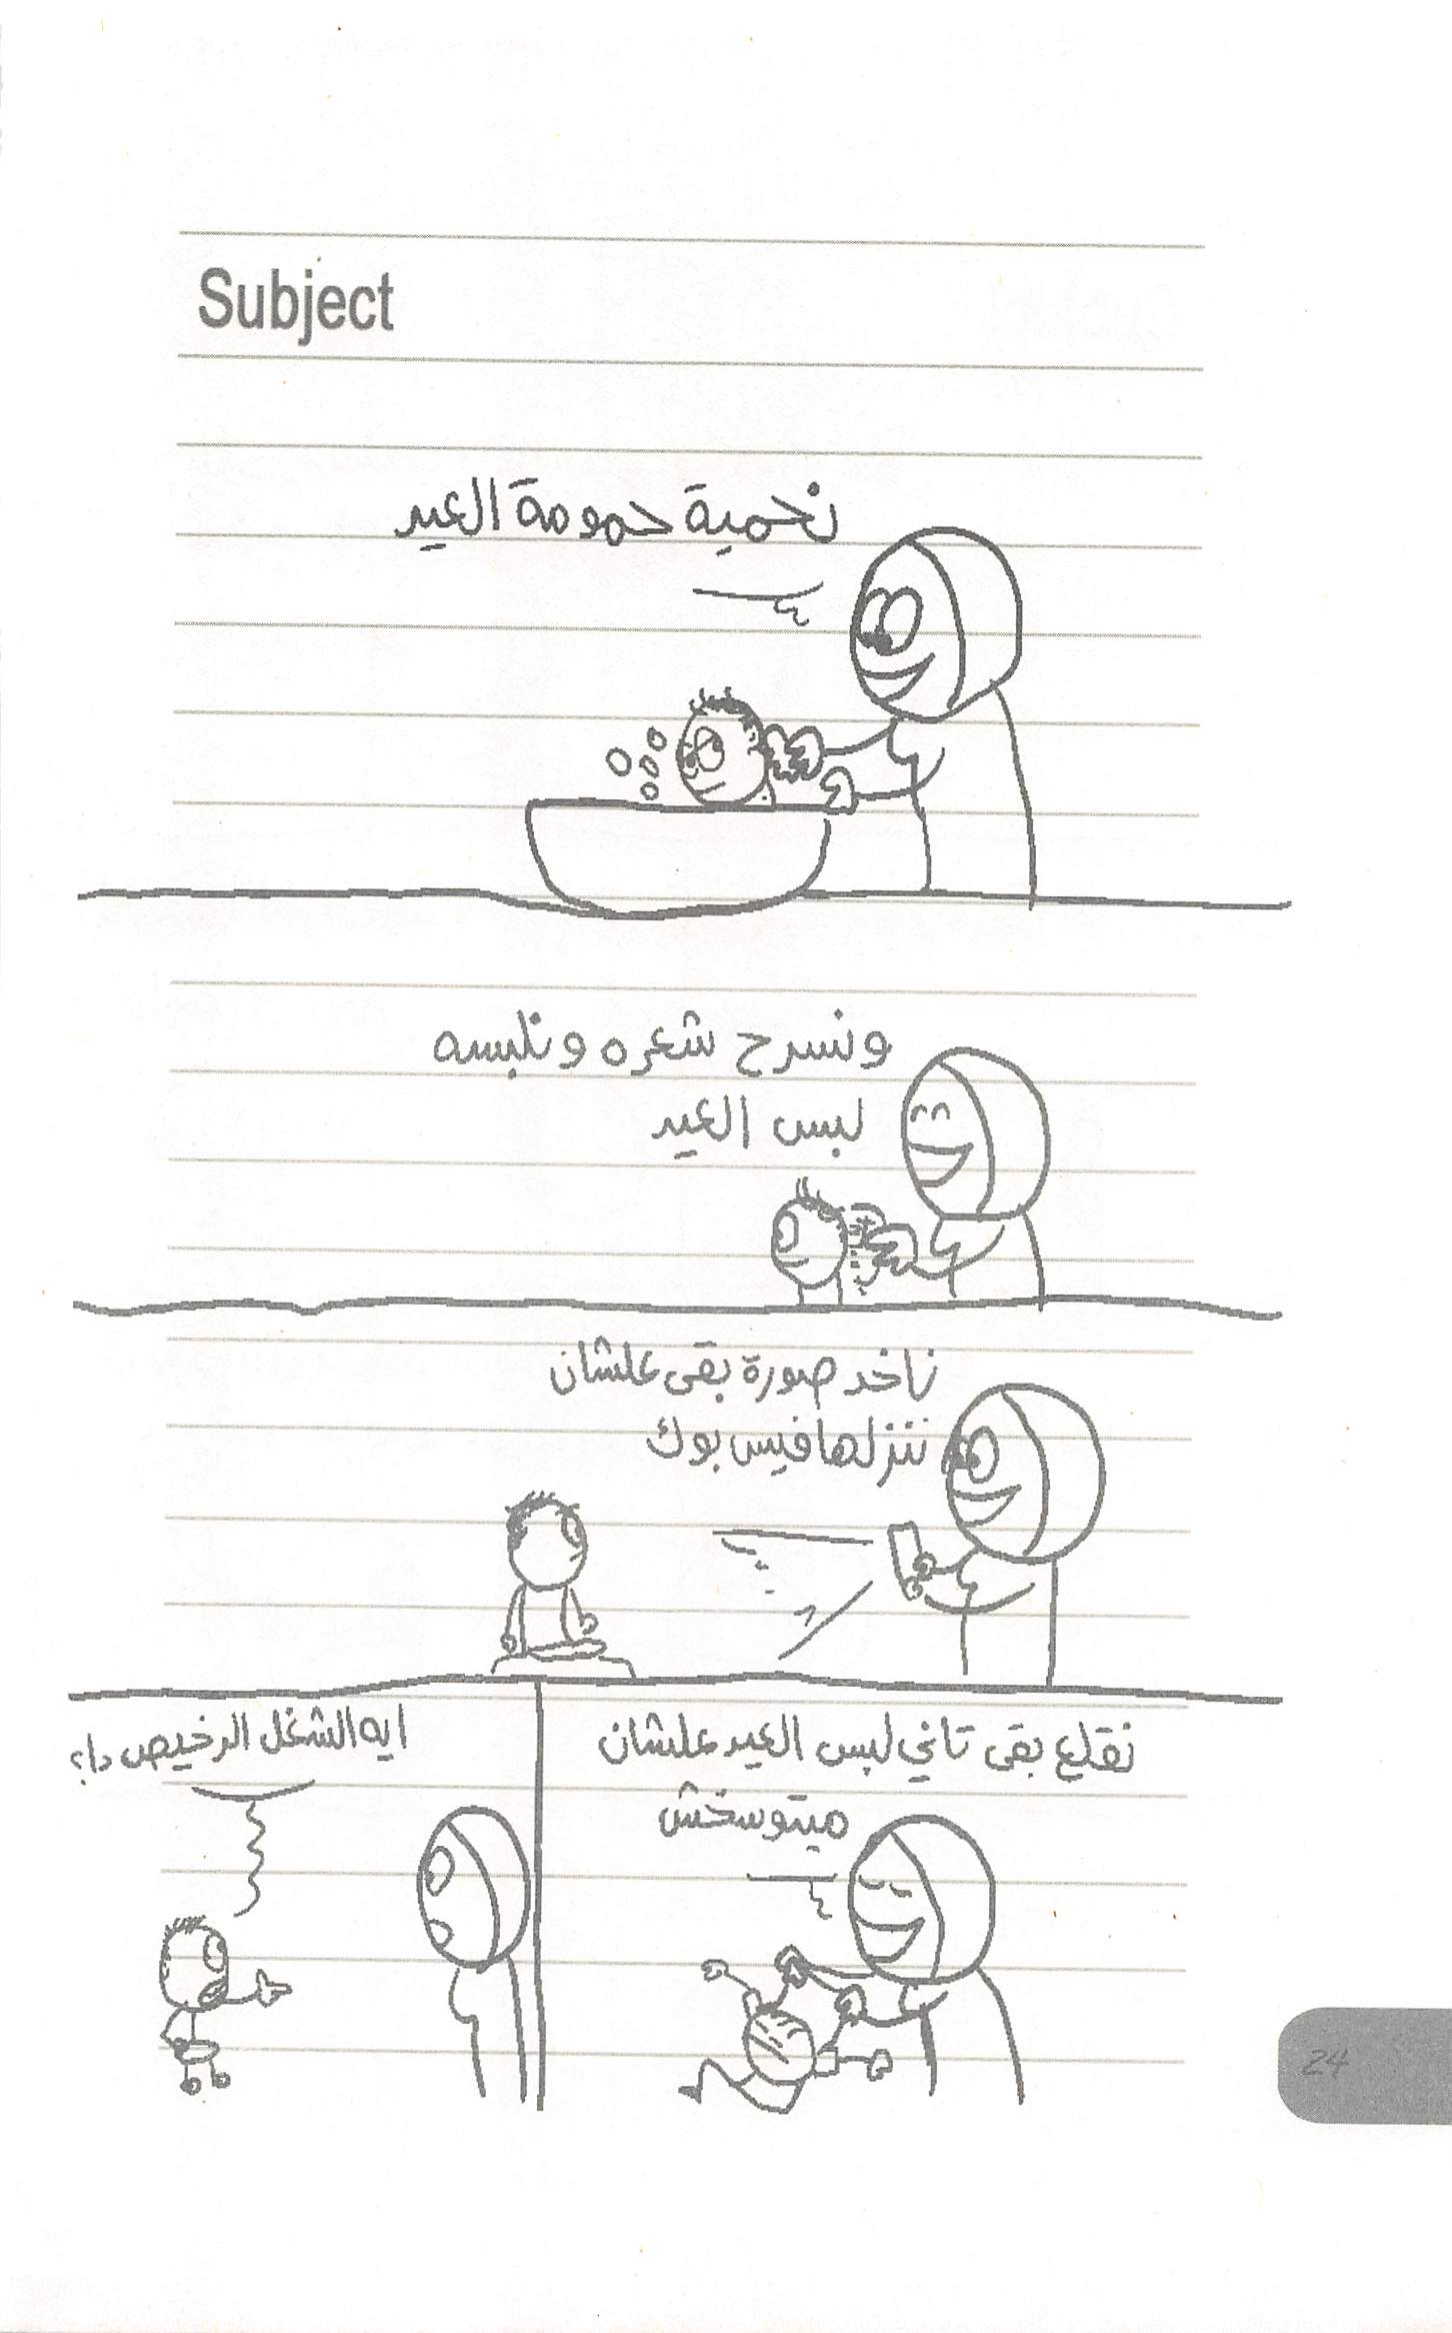 Subject
نحمية حمومة العيد
ونسرح شعره ونلبسه
لبس العيد
ناخد صورة بقى علشان
ننزلها فيس بوك
نقلع بقى تاني لبس العيد علشان
ميتوسخش
ايه الشغل الرخيص دا؟
24